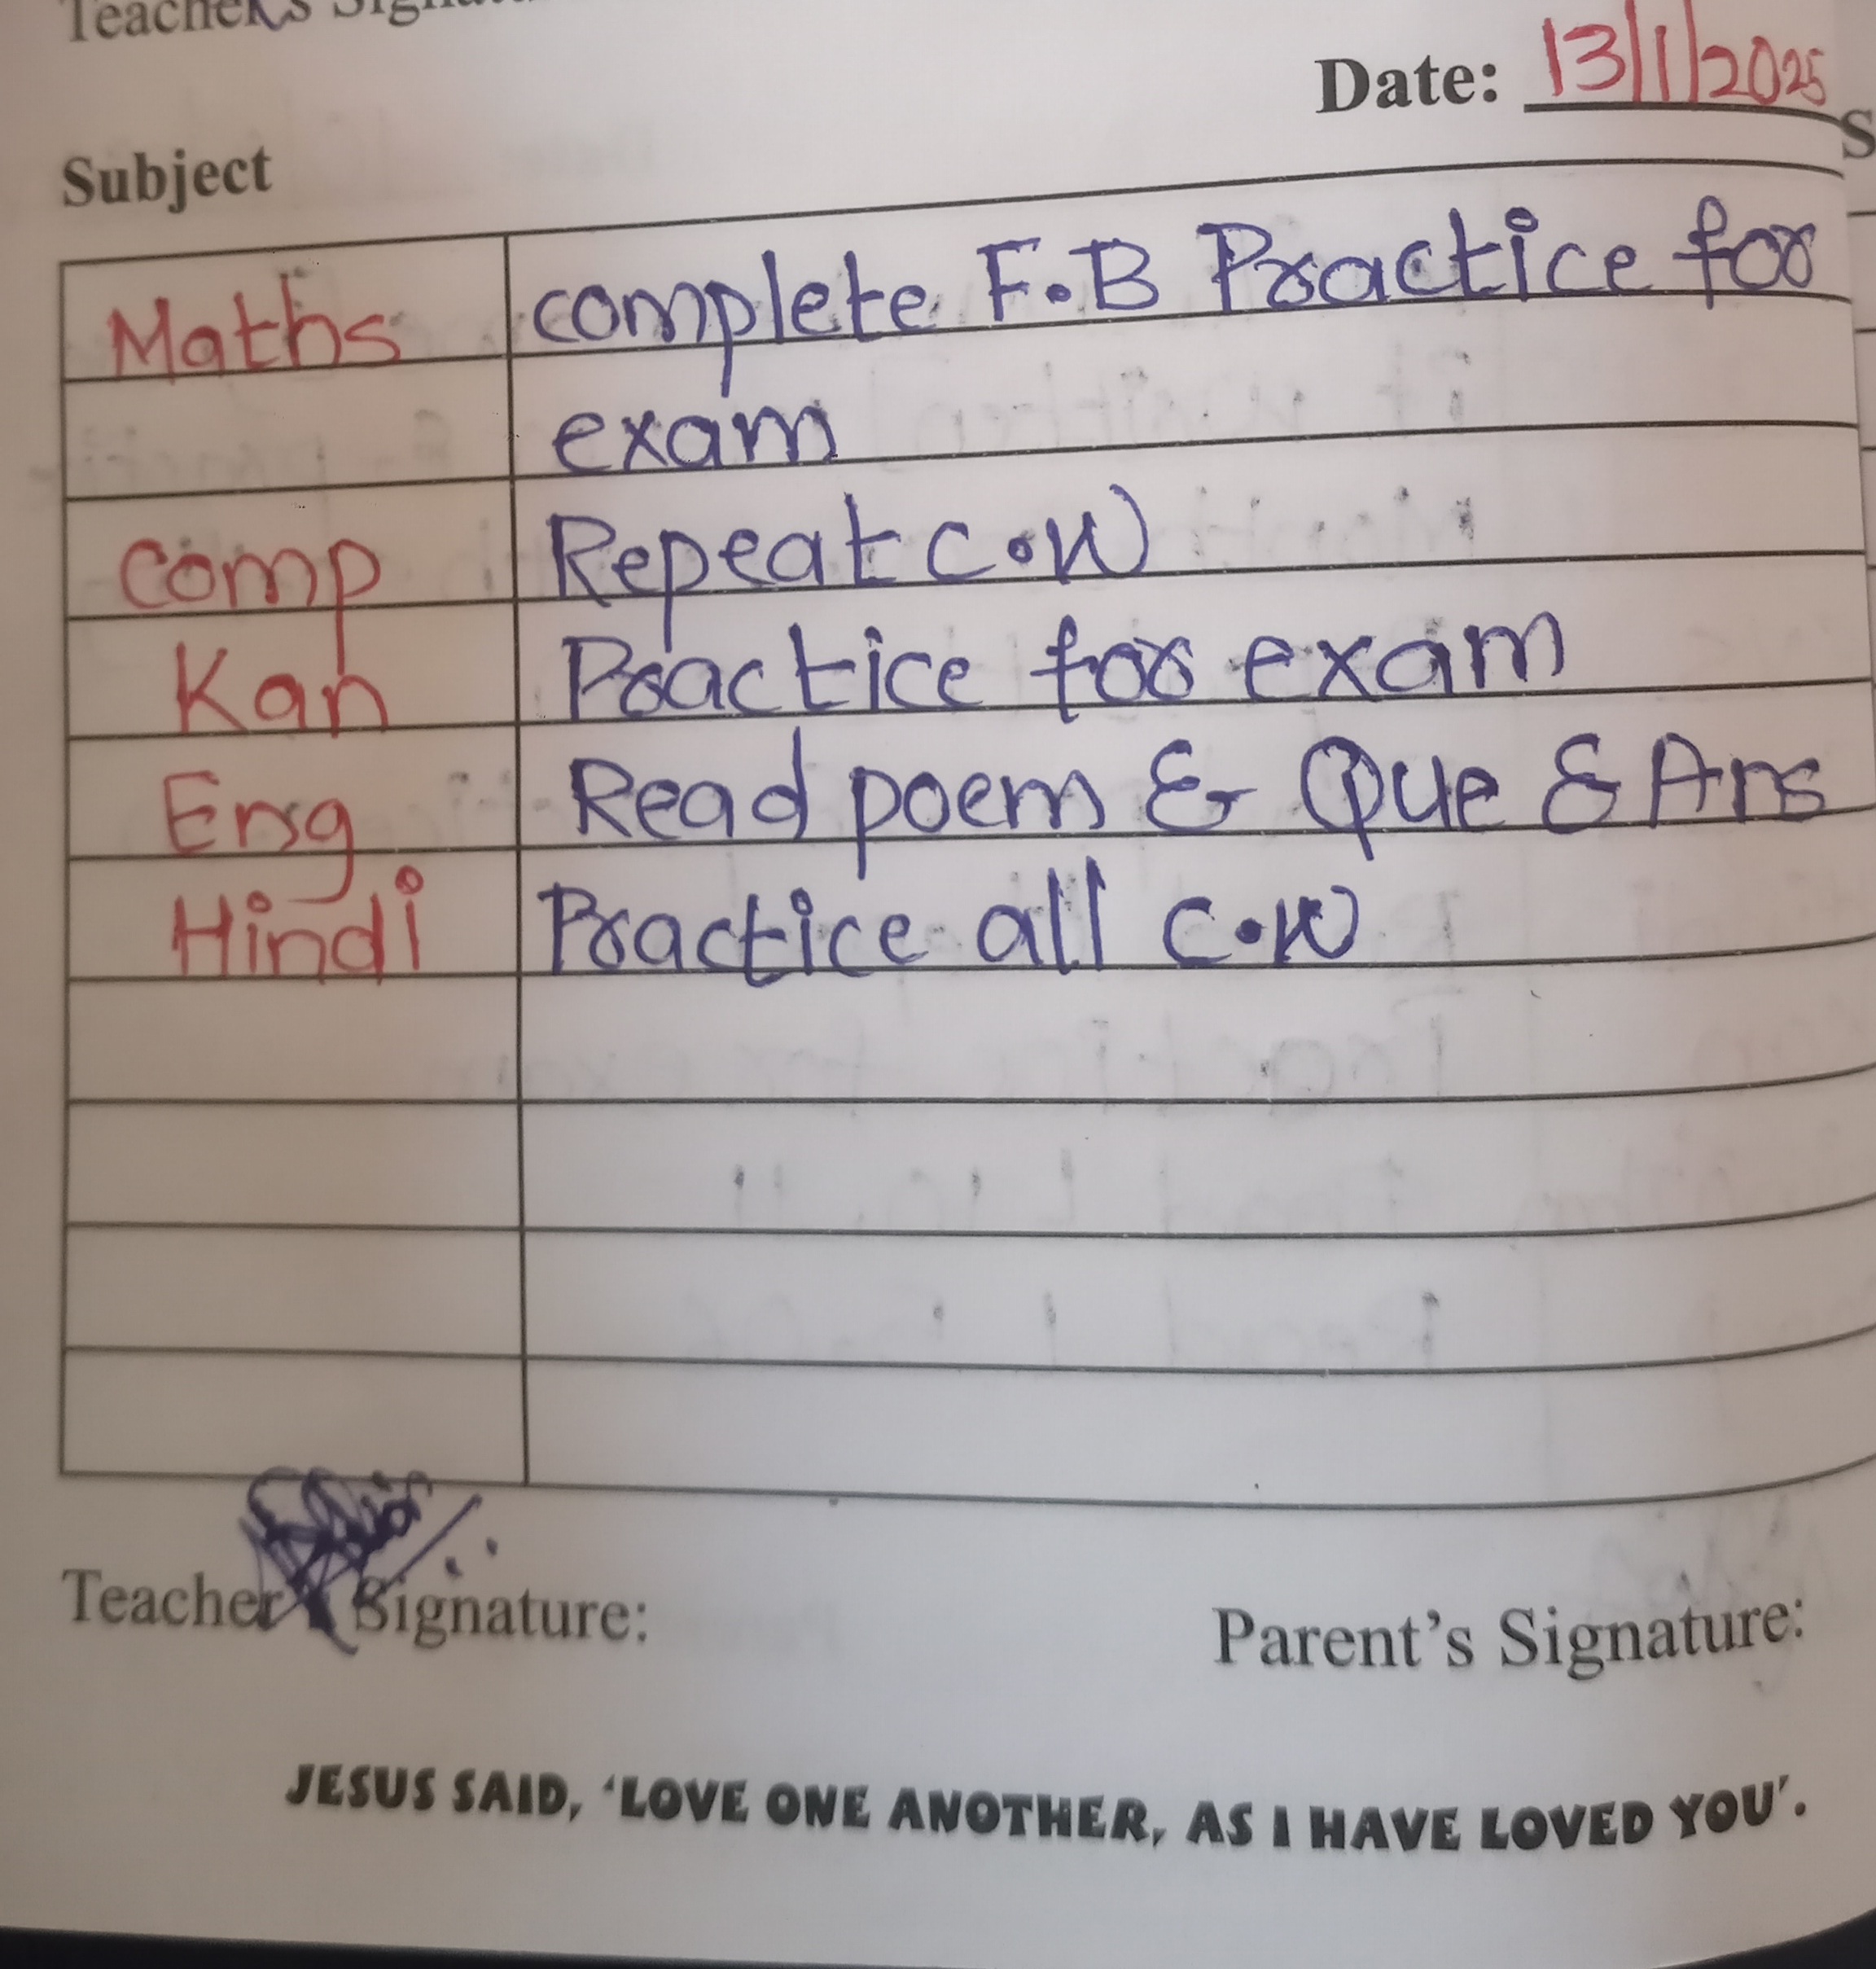 Teacher's
Date: 13/1/2025
Subject
Maths complete F.B Practice for
exam
Comp Repeat C.W
Kan Practice for exam
Eng Read poem & Que & Ans
Hindi Practice all C.W
Teacher Signature:
Parent's Signature:
JESUS SAID, 'LOVE ONE ANOTHER, AS I HAVE LOVED YOU'.